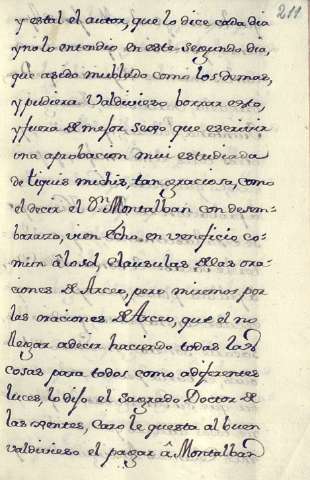 211
y estal el autor, que lo dice cada dia
y no lo entendio en este segundo dia,
que asido nublado como los demas,
y pudiera Valdivieso borrar esto,
y fuera de mejor seso que escrivir
una aprobacion mui estudiada
de tiquis michis, tan graciosa, como
el decir el Dr. Montalban con desem-
barazo, vien echo, en veneficio co-
mun â los sol, clausulas de las ora-
ciones de Arceo, pero miremos por
las oraciones de Arceo, que el no
llegar adecir haciendo todas las
cosas para todos como adiferentes
luces, lo dijo el sagrado Doctor de
las gentes, caro le questa al buen
valdivieso el pagar â Montalban